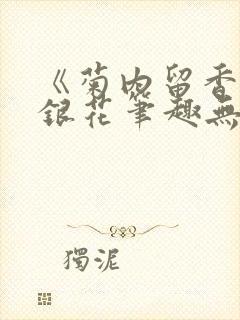 《菊内留香
銀花筆趣無
獨泥